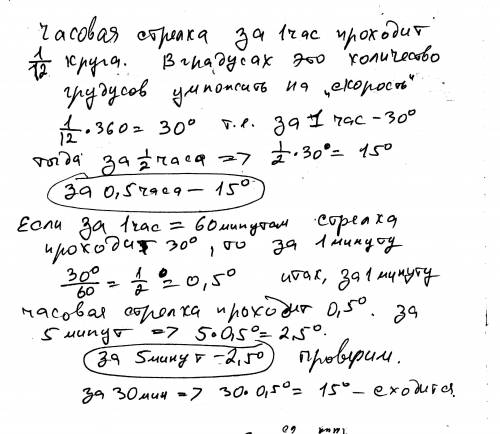 часовая стрелка за 1 час проходит
1/12 круга. В градусах это количество
грудусов умножить на „скорость"
1/12 · 360 = 30° т.е. за 1 час - 30°
тогда за 1/2 часа => 1/2 · 30° = 15°
за 0,5 часа - 15°
Если за 1 час = 60 минутам стрелка
проходит 30°, то за 1 минуту
30°/60 = 1/2° = 0,5° итак, за 1 минуту
часовая стрелка проходит 0,5°. за
5 минут => 5 · 0,5° = 2,5°.
за 5 минут - 2,5° проверим.
за 30 мин => 30 · 0,5° = 15° - сходится.